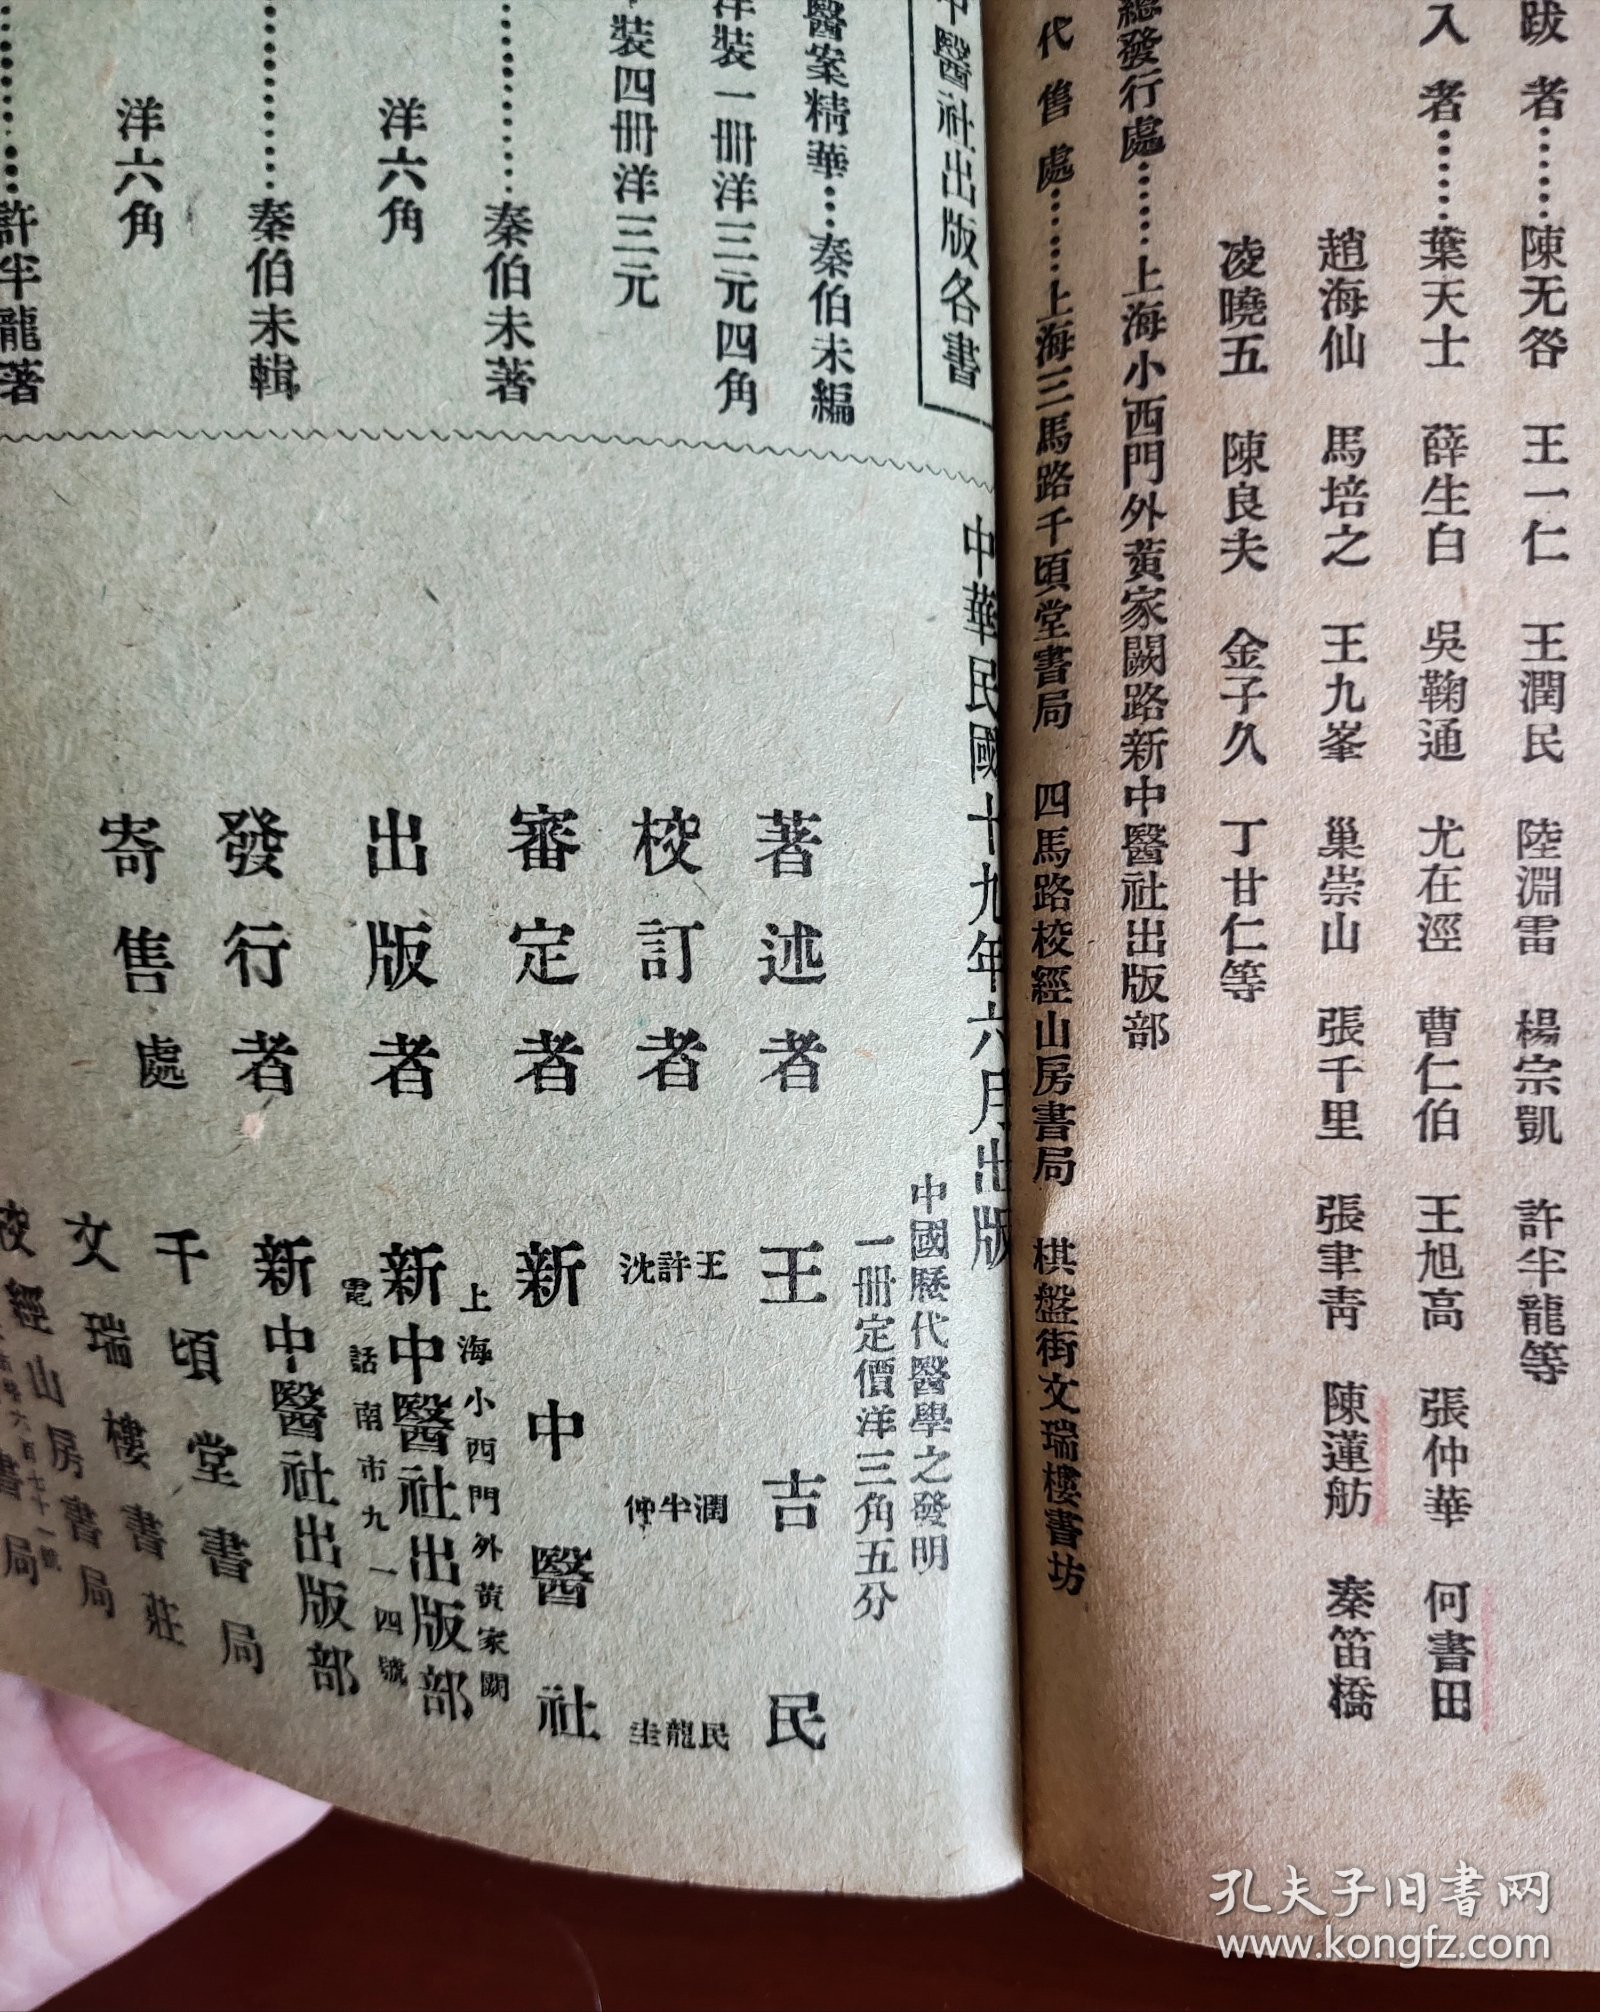 跋者……陳无咎 王一仁 王潤民 陸淵雷 楊宗凱 許半龍等
入者……葉天士 薛生白 吳鞠通 尤在涇 曹仁伯 王旭高 張仲華 何書田
趙海仙 馬培之 王九峯 巢崇山 張千里 張聿青 陳蓮舫 秦笛橋
凌曉五 陳良夫 金子久 丁甘仁等
總發行處……上海小西門外黃家闕路新中醫社出版部
代售處……上海三馬路千頃堂書局 四馬路校經山房書局 棋盤街文瑞樓書坊
中醫社出版各書
醫案精華…秦伯未編
洋裝一冊洋三元四角
裝四冊洋三元
秦伯未著
洋六角
秦伯未輯
洋六角
許半龍著
中華民國十九年六月出版
中國歷代醫學之發明
一冊定價洋三角五分
著述者 王吉民
校訂者 王潤民 許半龍 沈仲圭
審定者 新中醫社
上海小西門外黃家闕
出版者 新中醫社出版部
電話南市九一四號
發行者 新中醫社出版部
寄售處 千頃堂書局
文瑞樓書莊
校經山房書局
書局
孔夫子旧书网
www.kongfz.com